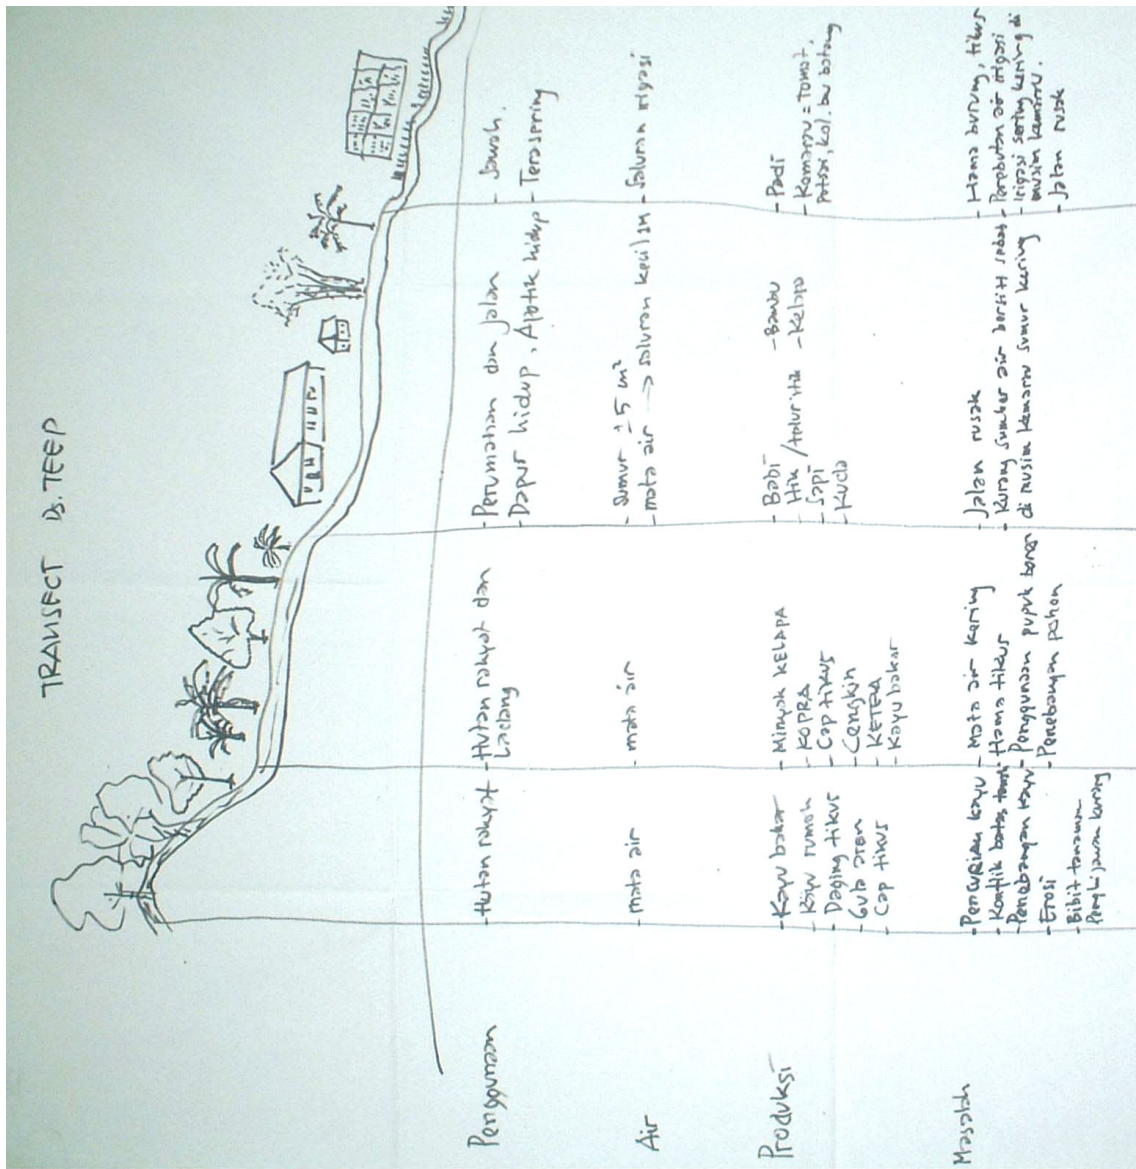 TRANSECT Ds. TEEP
Penggunaan
- Hutan rakyat
- Hutan rakyat dan
Ladang
- Perumahan dan jalan
- Dapur hidup, Apotik hidup
- Sawah
- Terasering
Air
- mata air
- mata air
- Sumur ± 5 m²
- mata air → saluran kecil
- Saluran irigasi
Produksi
- Kayu bakar
- Kayu rumah
- Daging tikus
- Gula aren
- Cap tikus
- Minyak KELAPA
- KOPRA
- Cap tikus
- Cengkih
- KETELA
- Kayu bakar
- Babi
- Itik
- Sapi
- Kuda
- Bambu
- Kelapa
- Padi
- Kemarau = Tomat,
Petsai, kol, bw batang
Masalah
- Pencurian kayu
- Konflik batas tanah
- Penebangan kayu
- Erosi
- Bibit tanaman
Penghijauan kurang
- Mata air kering
- Hama tikus
- Penggunaan pupuk
- Penebangan pohon
- Jalan rusak
- Kurang sumber air bersih
di musim kemarau sumur kering
- Hama burung, tikus
- Perebutan air irigasi
- Irigasi sering kering di
musim kemarau.
- Jalan rusak